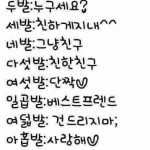 두발:누구세요?
세발:친하게지내^^
네발:그냥친구
다섯발:친한친구
여섯발:단짝♡
일곱발:베스트프렌드
여덟발: 건드리지마;
아홉발:사랑해♡